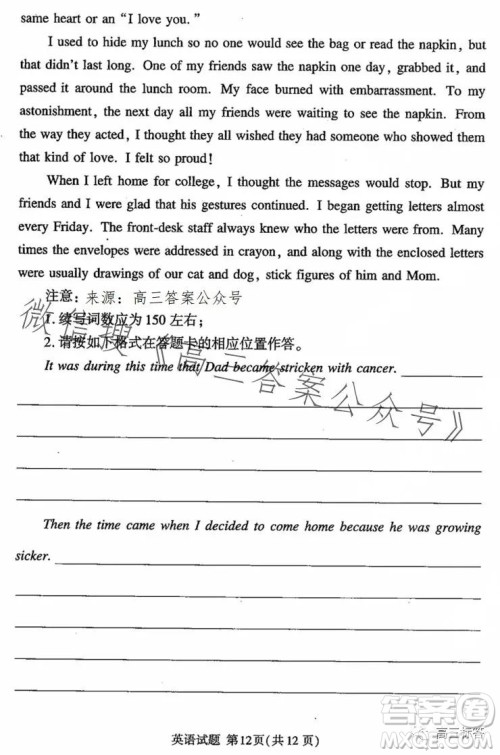 same heart or an “I love you.”
I used to hide my lunch so no one would see the bag or read the napkin, but
that didn’t last long. One of my friends saw the napkin one day, grabbed it, and
passed it around the lunch room. My face burned with embarrassment. To my
astonishment, the next day all my friends were waiting to see the napkin. From
the way they acted, I thought they all wished they had someone who showed them
that kind of love. I felt so proud!
When I left home for college, I thought the messages would stop. But my
friends and I were glad that his gestures continued. I began getting letters almost
every Friday. The front-desk staff always knew who the letters were from. Many
times the envelopes were addressed in crayon, and along with the enclosed letters
were usually drawings of our cat and dog, stick figures of him and Mom.
注意：来源：高三答案公众号
1. 续写词数应为 150 左右；
2. 请按如下格式在答题卡的相应位置作答。
It was during this time that Dad became stricken with cancer.
微信搜《高三答案公众号》
Then the time came when I decided to come home because he was growing
sicker.
英语试题 第12页(共12页)
高三标答
答案圈
MXQE.COM